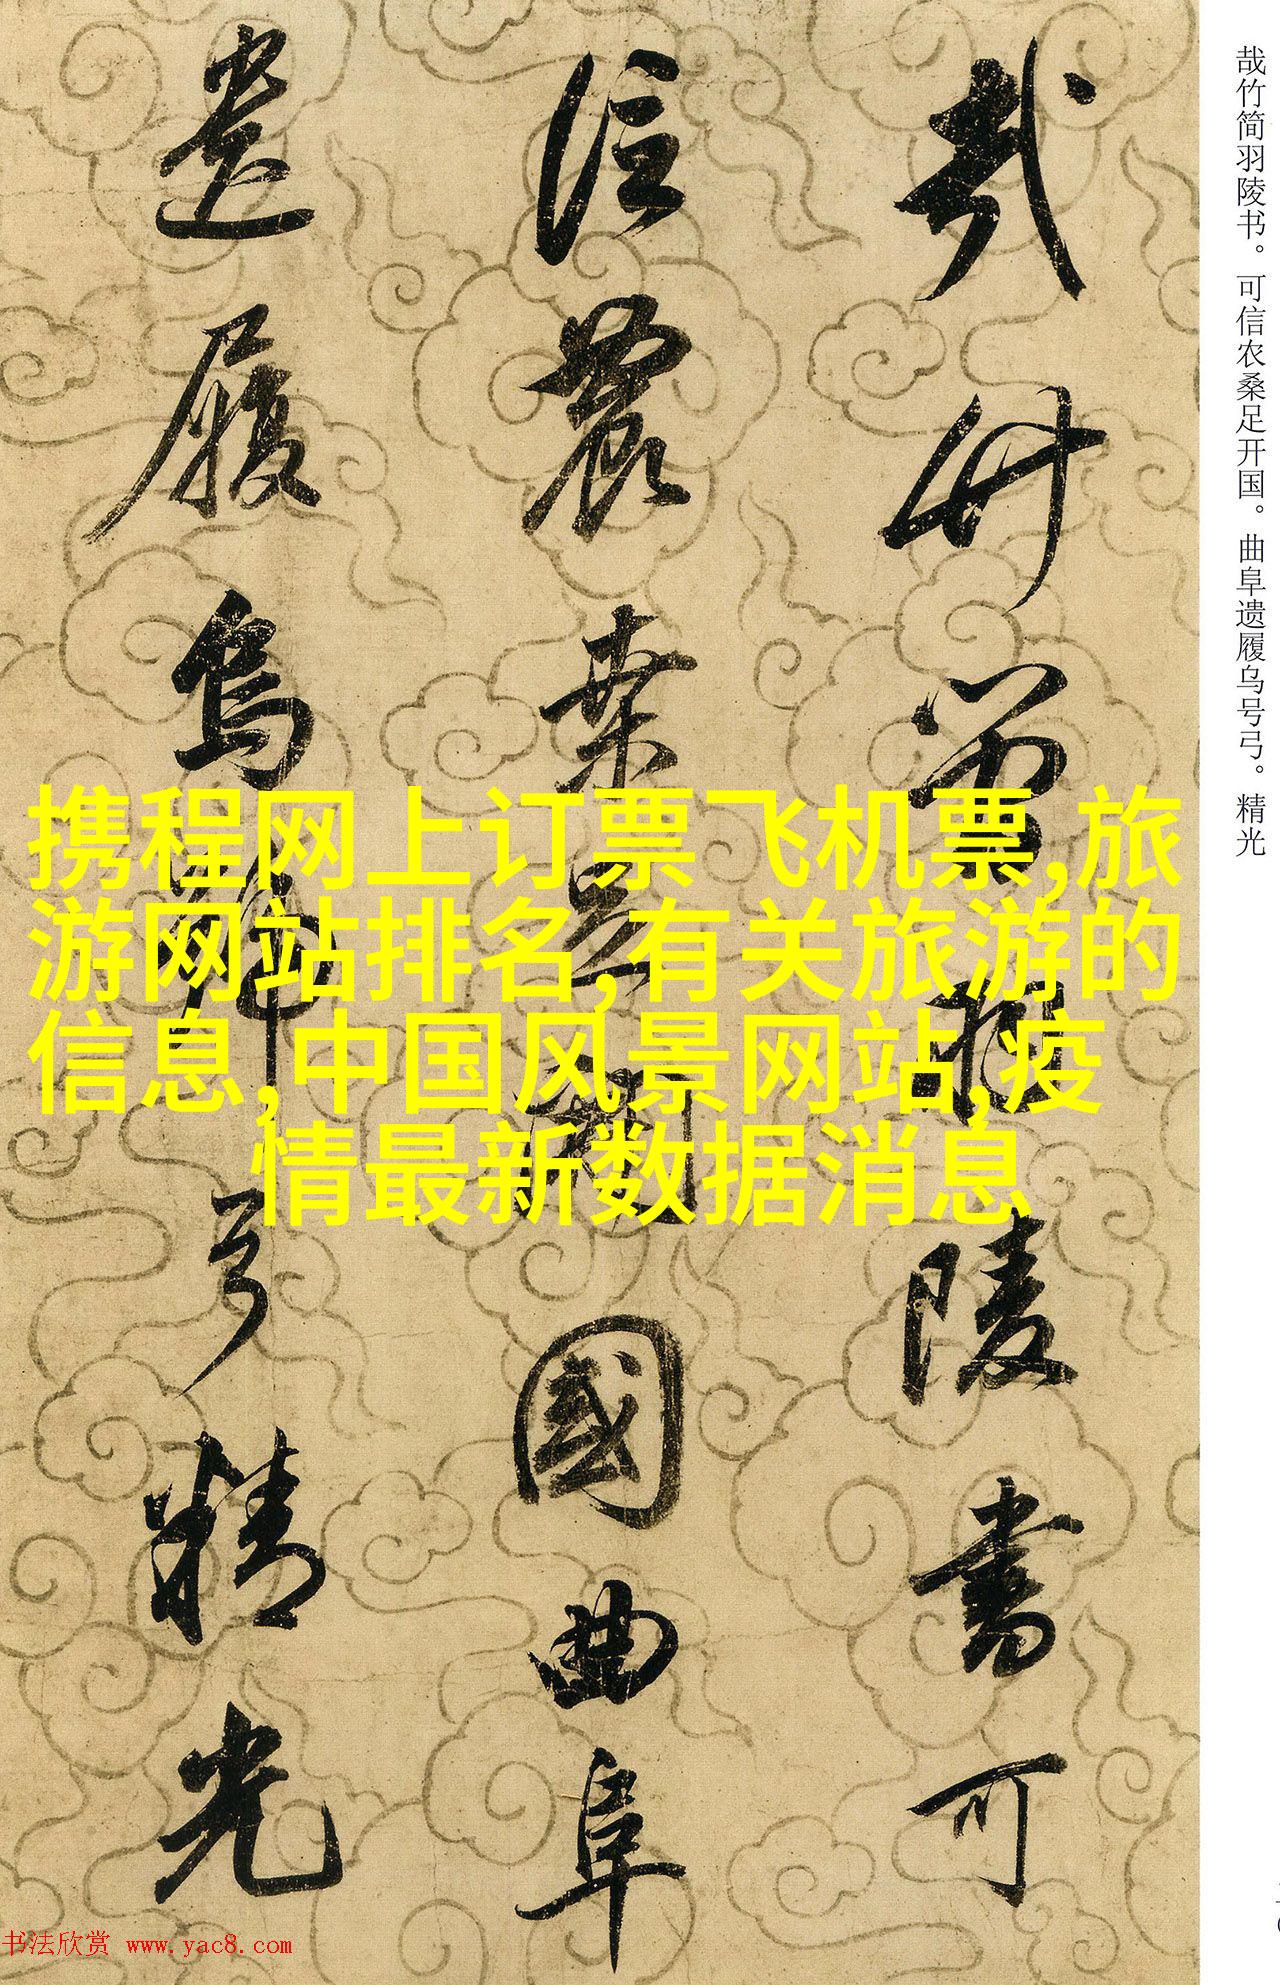 哉竹简羽陵书。可信农桑足开国。曲阜遗履乌号弓。精光
哉竹簡羽陵書可
信農桒足開國曲阜
遺履烏號弓精光
携程网上订票飞机票,旅
游网站排名,有关旅游的
信息,中国风景网站,疫
情最新数据消息
书法欣赏 www.yac8.com